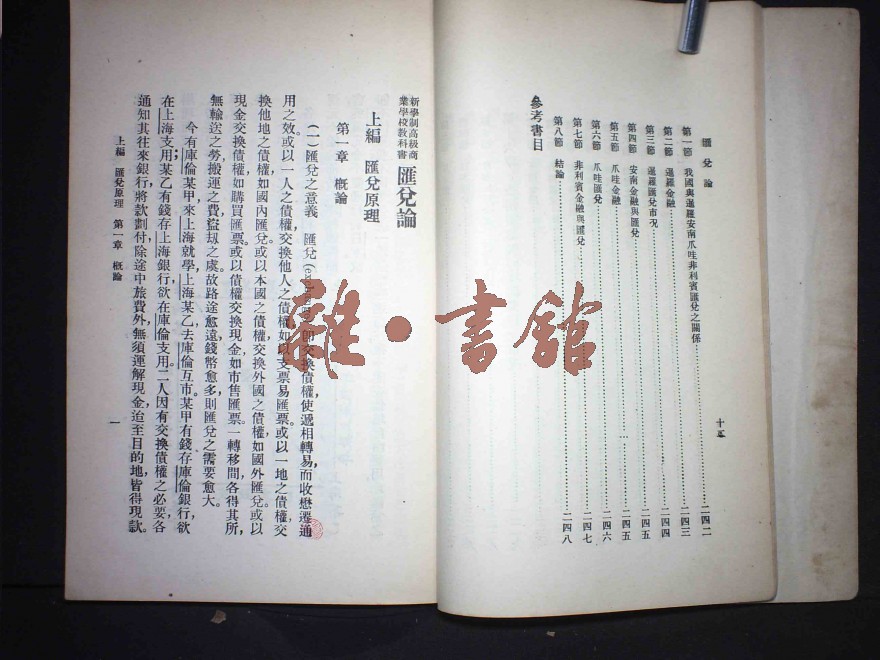 匯兌論
第一節　我國與暹羅安南爪哇非利賓匯兌之關係……二四二
第二節　暹羅金融……二四三
第三節　暹羅匯兌市況……二四四
第四節　安南金融與匯兌……二四五
第五節　爪哇金融……二四五
第六節　爪哇匯兌……二四六
第七節　非利賓金融與匯兌……二四七
第八節　結論……二四八
參考書目
十五
新學制高級商業學校教科書　匯兌論
上編　匯兌原理
第一章　概論
(一)匯兌之意義　匯兌(
即交換債權，使遞相轉易，而收懋遷通
用之效。或以一人之債權交換他人之債權，如以支票易匯票。或以一地之債權交
換他地之債權，如國內匯兌。或以本國之債權交換外國之債權，如國外匯兌。或以
現金交換債權，如購買匯票。或以債權交換現金，如市售匯票。一轉移間，各得其所，
無輸送之勞，搬運之費，盜劫之虞。故路途愈遠，錢幣愈多，則匯兌之需要愈大。
今有庫倫某甲來上海就學，上海某乙去庫倫互市，某甲有錢存庫倫銀行，欲
在上海支用；某乙有錢存上海銀行，欲在庫倫支用。二人因有交換債權之必要，各
通知其往來銀行，將款劃付，除途中旅費外，無須運解現金，迨至目的地，皆得現款。
上編　匯兌原理　第一章　概論
一
雜·書館